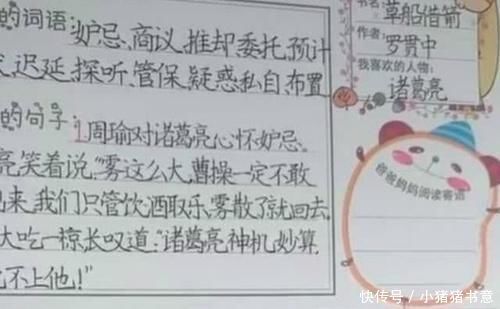 的词语:妒忌、商议、推却委托、预计
迟延、探听、管保、疑惑私自、布置
的句子:1.周瑜对诸葛亮心怀妒忌。
亮笑着说“雾这么大,曹操一定不敢
出来,我们只管饮酒取乐,雾散了就回去。
大吃一惊,长叹道:“诸葛亮神机妙算,
比不上他!”
书名:草船借箭
作者:罗贯中
我喜欢的人物:
诸葛亮
爸爸妈妈阅读寄语
快传号/小猪猪书意